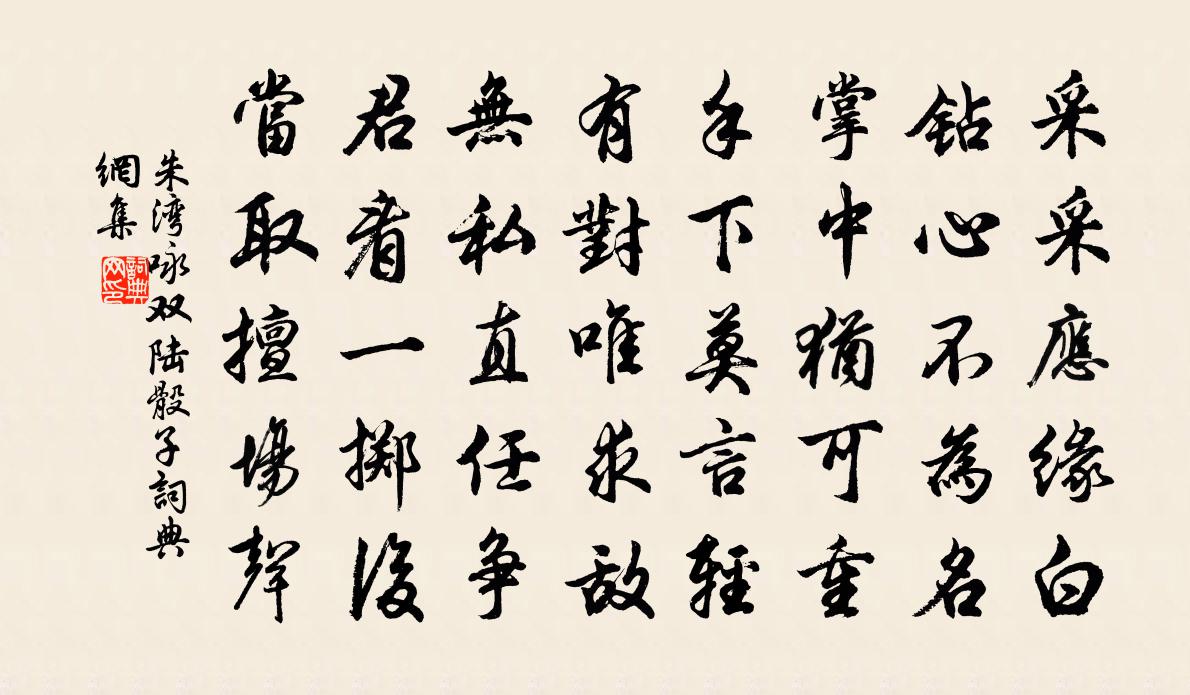 采采應緣白
鉆心不為名
掌中猶可重
手下莫言輕
有對唯求敵
無私直任爭
君看一擲後
當取擅場聲
朱湾咏双陆骰子詞典
網集
詞典
网印